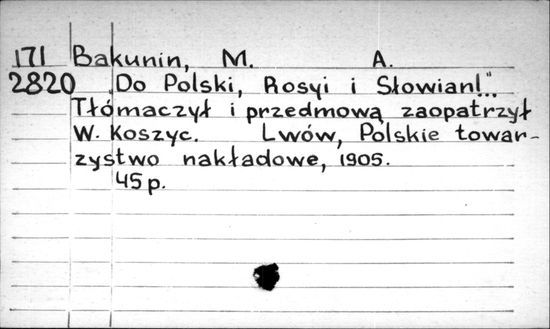 171 Bakunin, M. A.
2820 "Do Polski, Rosyi i Słowian!".
Tłómaczył i przedmową zaopatrzył
W. Koszyc. Lwów, Polskie towar-
zystwo nakładowe, 1905.
45 p.